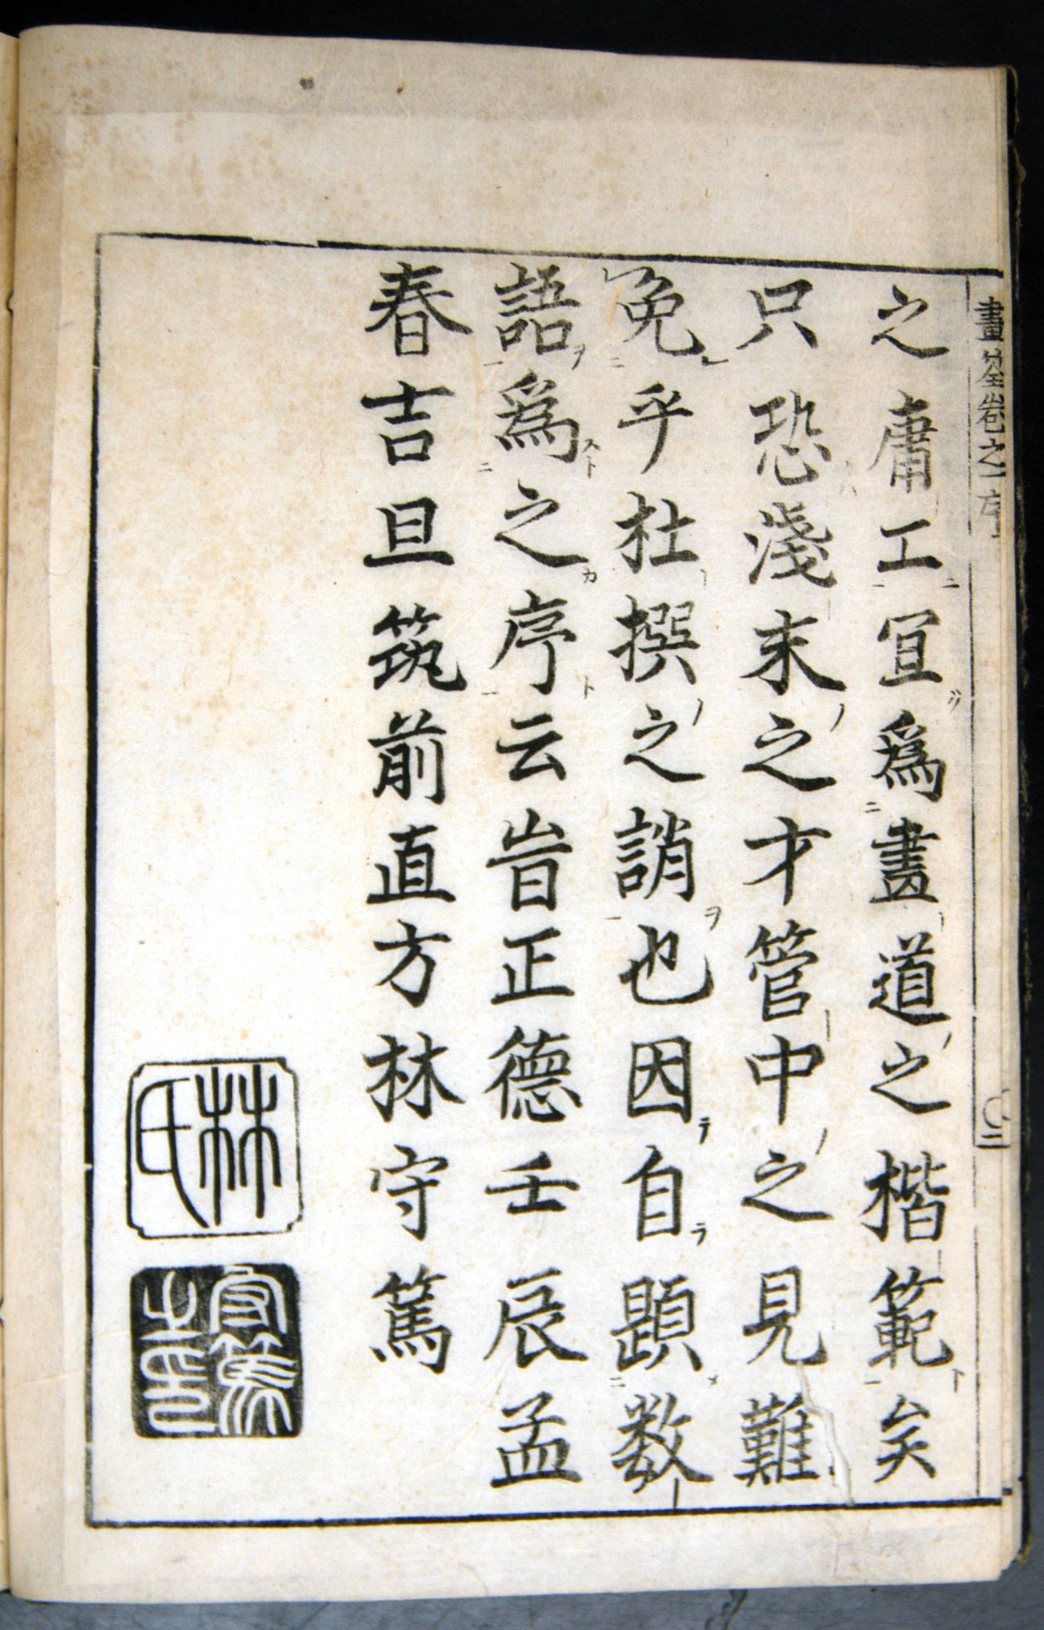 畫筌卷之一序
〇二
之庸工宜爲畫道之楷範矣
只恐淺末之才管中之見難
免乎杜撰之誚也因自題数
語爲之序云旹正德壬辰孟
春吉旦筑前直方林守篤
林氏
守篤之印